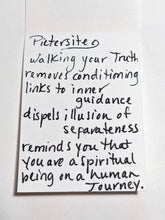 Pietersite
walking your Truth
removes conditioning
links to inner
guidance
dispels illusion of
separateness
reminds you that
you are a spiritual
being on a human
Journey.